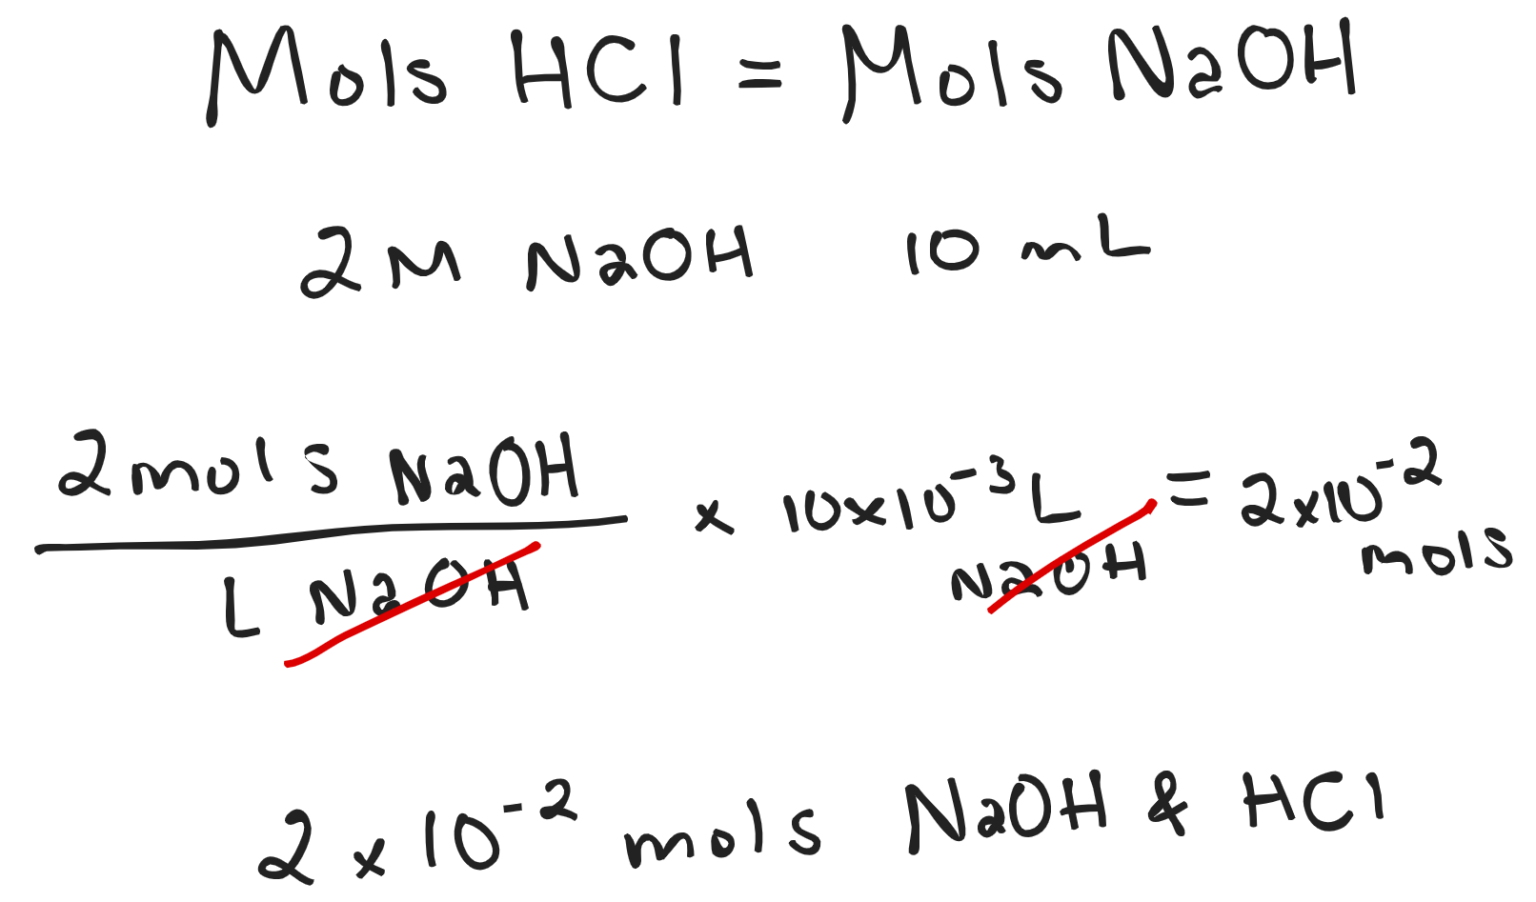 Mols HCl = Mols NaOH
2M NaOH 10 mL
2 mols NaOH
L NaOH
x 10x10⁻³ L NaOH = 2x10⁻² mols
2 x 10⁻² mols NaOH & HCl